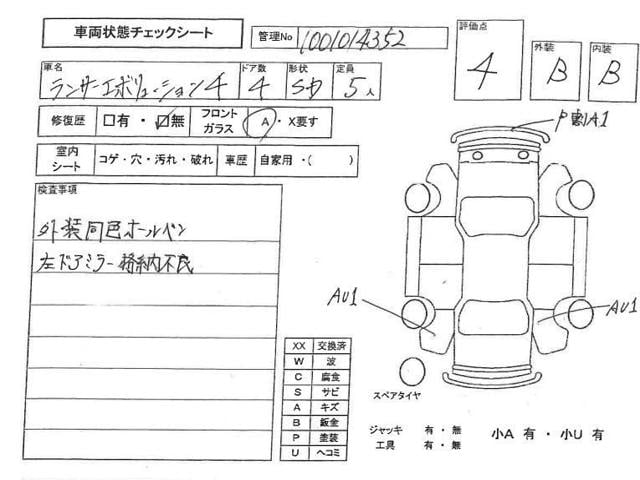 車両状態チェックシート 管理No 1001014352
評価点 4 外装 B 内装 B
車名 ランサーエボリューション4 ドア数 4 形状 SD 定員 5人
修復歴 □有・☑無 フロントガラス A・X要す
室内シート コゲ・穴・汚れ・破れ 車歴 自家用・( )
検査事項
外装同色オールペン
左ドアミラー格納不良
P割A1
AU1
AU1
XX 交換済
W 波
C 腐食
S サビ
A キズ
B 鈑金
P 塗装
U ヘコミ
スペアタイヤ
ジャッキ 有・無
工具 有・無
小A 有・小U 有